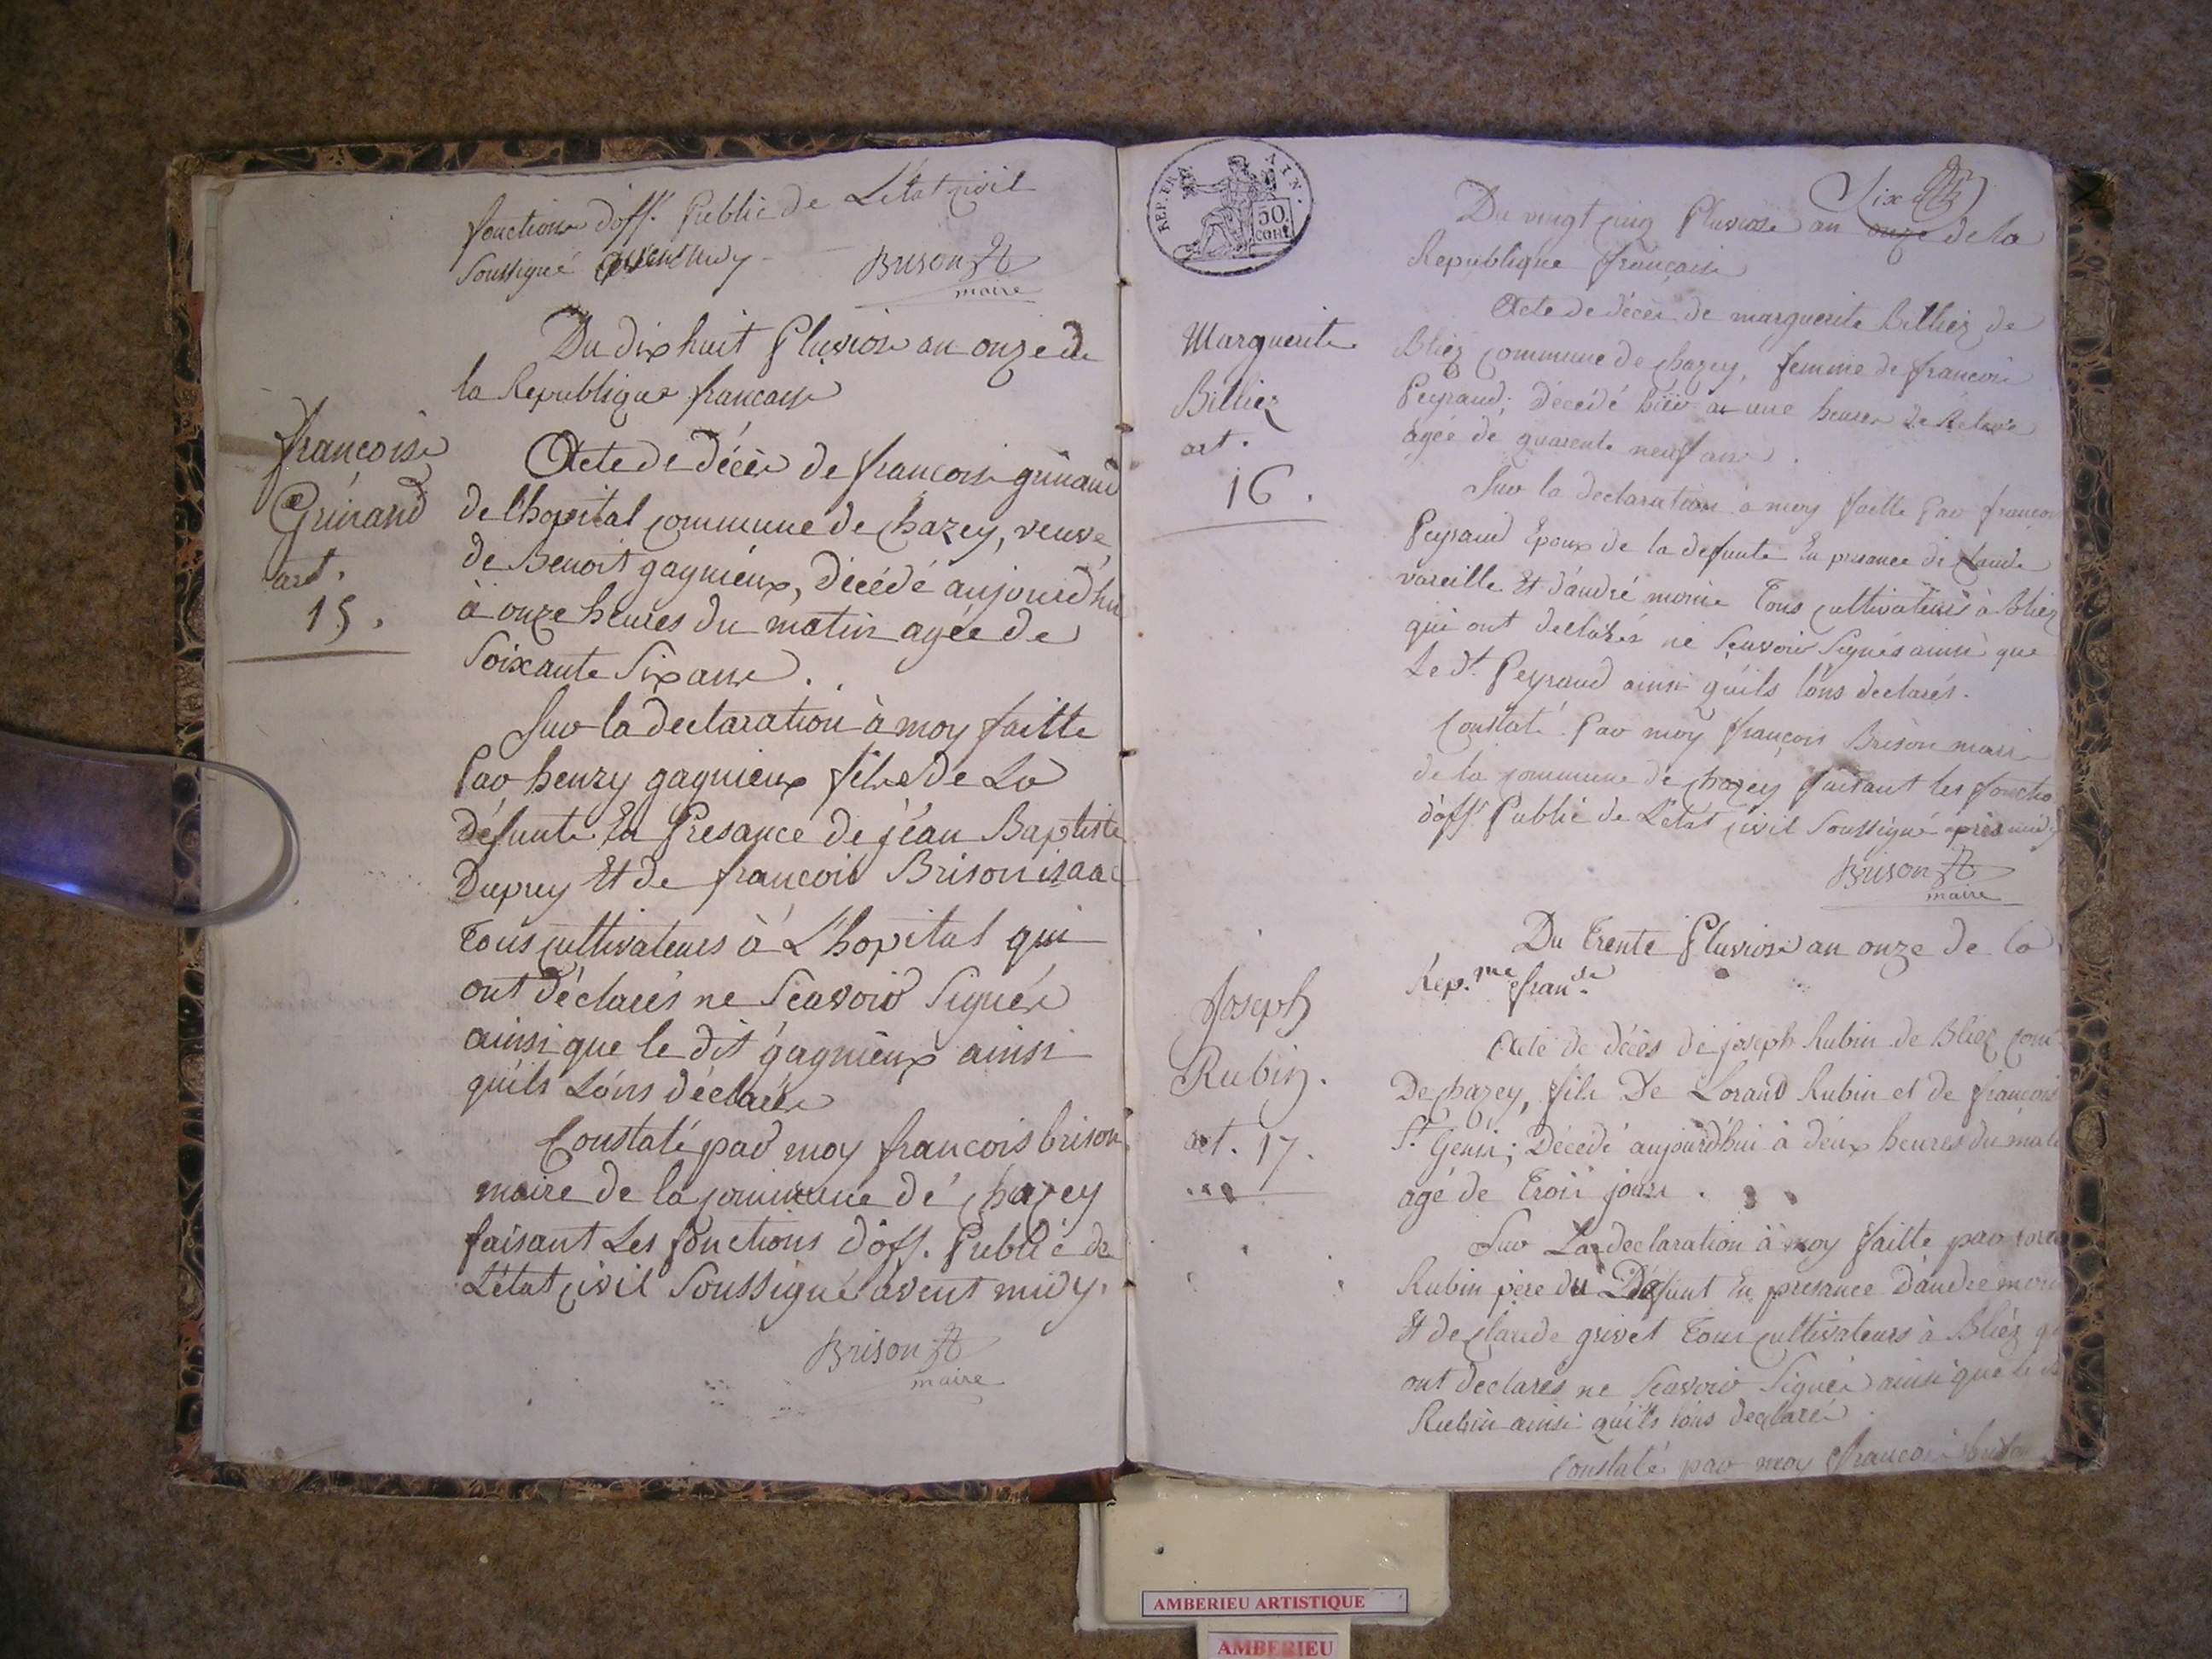 fonctions d'off. Public de L'état civil
soussigné avent midy
Brison
maire
Du dix huit Pluviose an onze de
la Republique francaise
françoise
Guinand
art.
15.
Acte de décès de francoise guinand
de l'hopital commune de chazey, veuve
de Benoit gagnieux, décédé aujourd'hui
à onze heures du matin agée de
soixante six ans.
Sur la declaration à moy faitte
Par henry gagnieux fils de La
défunte En Presance de jéan Baptiste
Duprey Et de francois Brison isaac
Tous cultivateurs à L'hopital qui
ont déclarés ne sçavoir signér
ainsi que le dit gagnieux ainsi
qu'ils L'ons déclaré
Constaté par moy francois brison
maire de la commune dé chazey
faisant Les fonctions d'off. Public de
L'état civil soussigné avent midy.
Brison
maire
REP. FRA
AIN.
50.
CENT.
Six
Du vingt cinq Pluviose an onze de la
Republique francaise
Marguerite
Billiez
art.
16.
Acte de décès de marguerite Billiez de
Bliez commune de chazey, femme de francois
Peyraud; décédé hiér a une heures de Relevé
agée de quarente neuf ans.
Sur la declaration à moy faitte Par francois
Peyraud Epoux de la defunte En presance de Claude
vareille Et d'andré monie Tous cultivateurs à bliez
qui ont declarés ne sçavoir signés ainsi que
Le dt. Peyraud ainsi qu'ils l'ons declarés.
Constaté Par moy françois Brison maire
de la commune de chazey faisant les fonctio
d'off. Public de L'état civil soussigné après midy
Brison
maire
Du Trente Pluviose an onze de la
Rép.me fran.se
Joseph
Rubin.
art. 17.
Acte de décès de joseph Rubin de Bliez com.
De chazey, fils De Lorand Rubin et de françoise
St. Genis; Décédé aujourd'hui à deux heures du mati
agé de Trois jours.
Sur La declaration à moy faitte par
Rubin père du Défunt En presance D'andré moni
Et de claude grivet Tous cultivateurs à Bliéz
ont declarés ne sçavoir signér ainsi que le
Rubin ainsi qu'ils l'ons declaré
Constaté par moy francois brison
AMBERIEU ARTISTIQUE
AMBERIEU